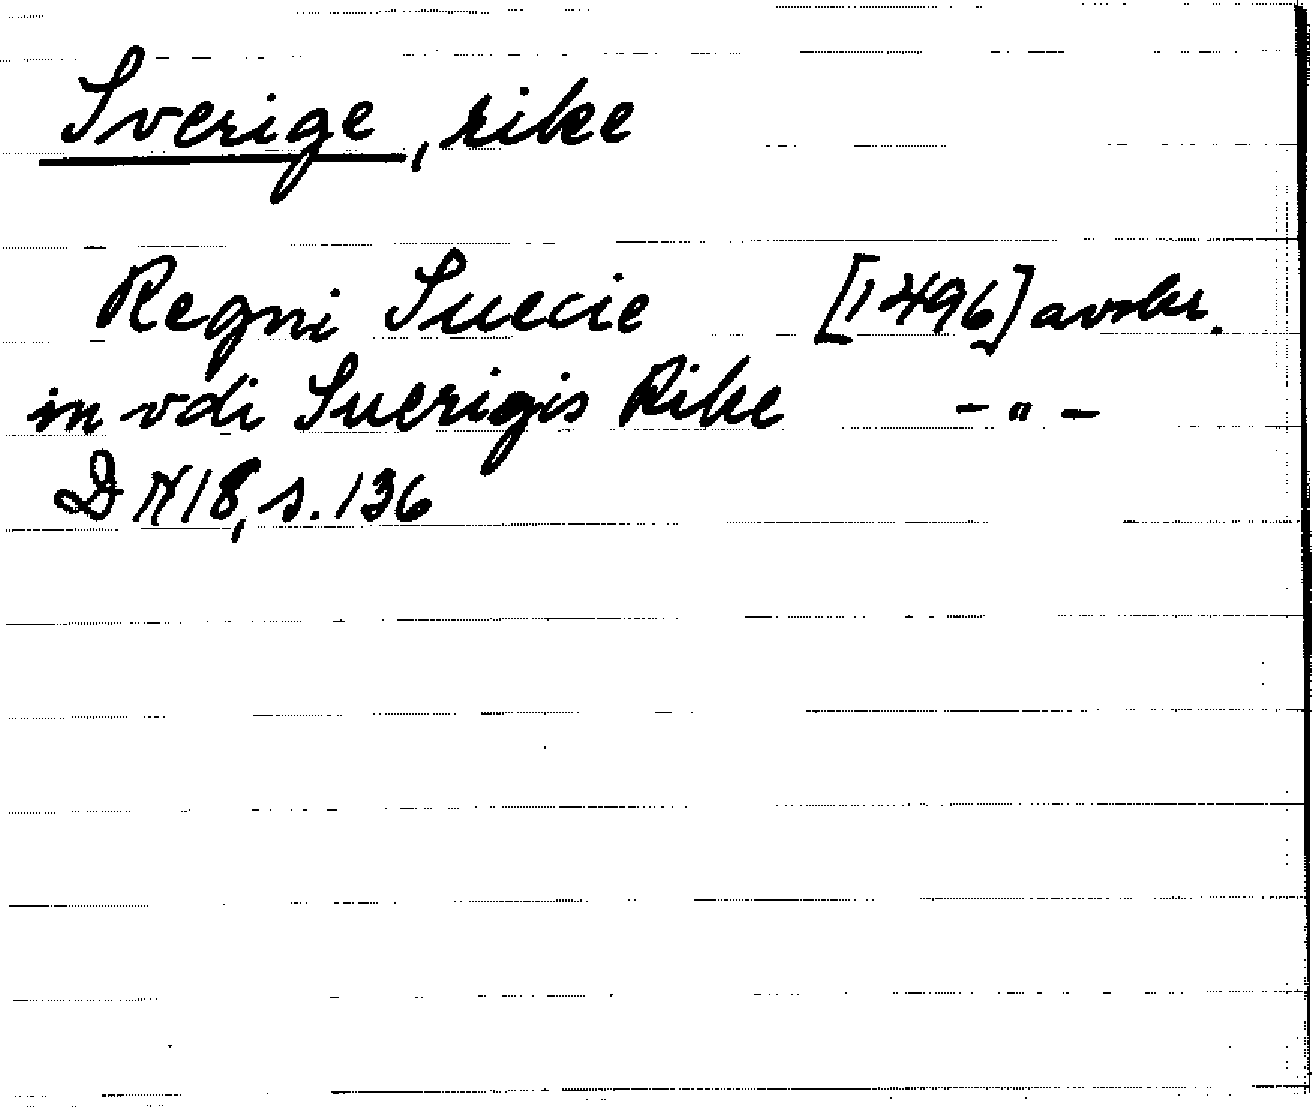 Sverige, rike
Regni Suecie [1496] avskr.
in vdi Suerigis Rike - " -
DN 18, s. 136